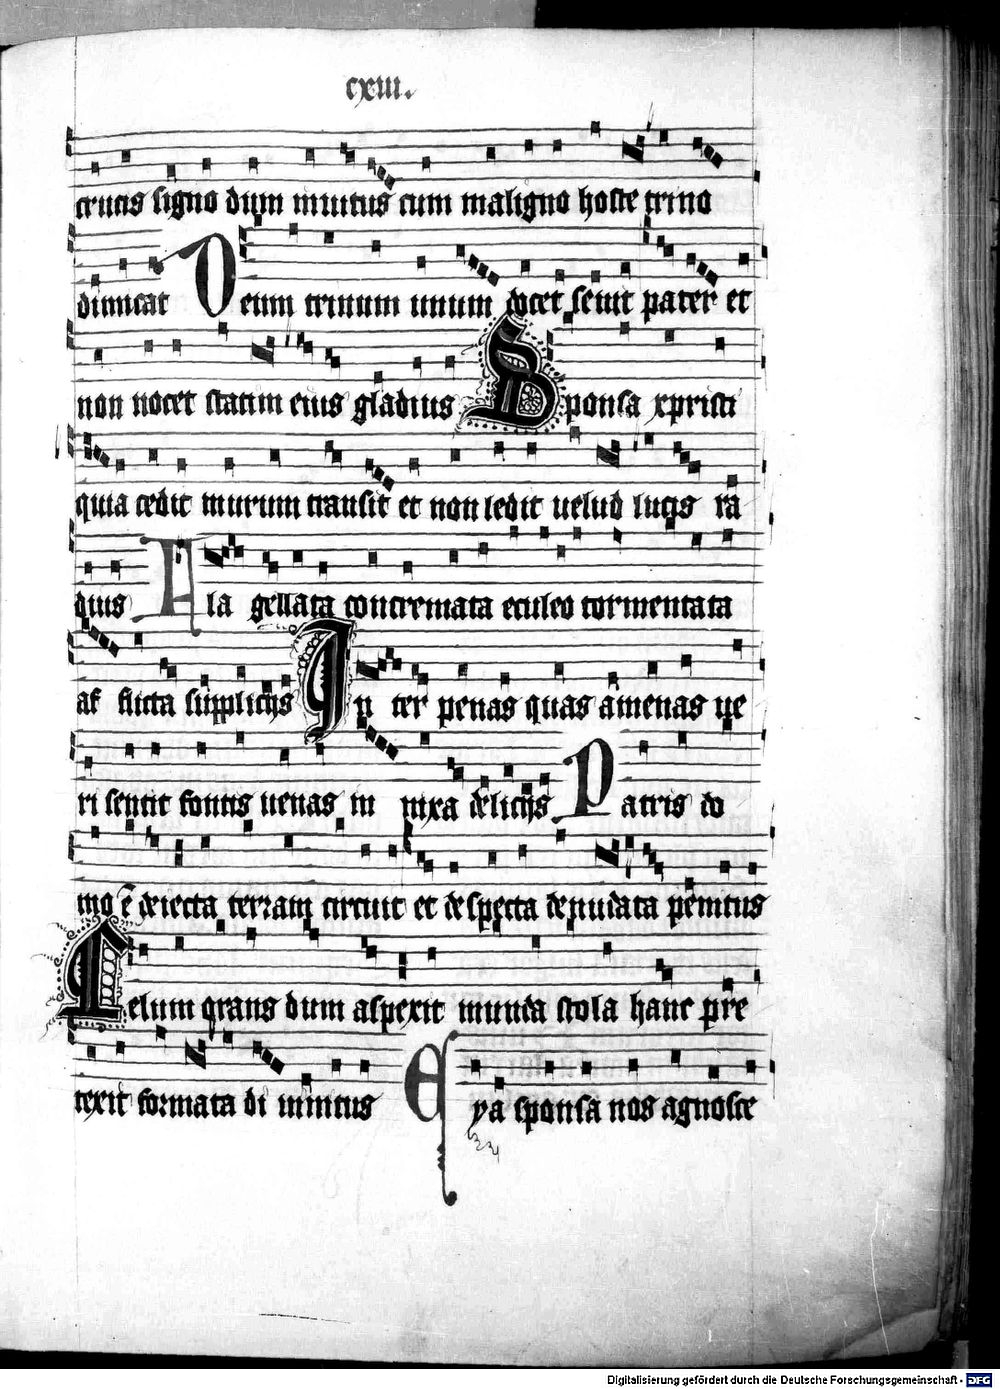 cxiii.
crucis signo dum munitus cum maligno hoste trino
dimicat Deum trinum unum docet seuit pater et
non nocet statim eius gladius Sponsa xpristi
quia cedit murum transit et non ledit uelud lucis ra
dius Fla gellata concremata eculeo tormentata
af flicta supplicijs In ter penas quas amenas ue
ri sentit fontis uenas in nixa delicijs Patris do
mo ē deiecta terram circuit et despecta denudata penitus
Celum grans dum aspexit munda stola hanc pre
texit formata di uinitus Eya sponsa nos agnosce
Digitalisierung gefördert durch die Deutsche Forschungsgemeinschaft - DFG